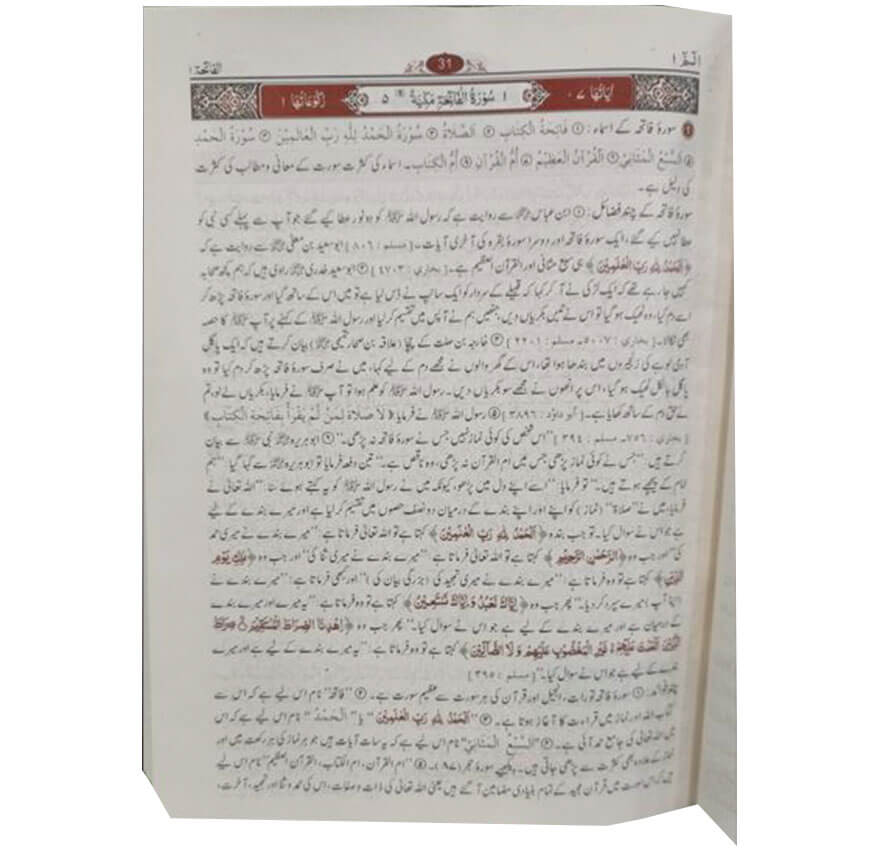 الٓمّٓ ١
31
الفاتحة ١
اٰیَاتُهَا ٧
١ سُوْرَةُ الْفَاتِحَةِ مَكِّيَّةٌ ٥
رُكُوْعَاتُهَا ١
❶ سورۂ فاتحہ کے اسماء: ① فَاتِحَةُ الْكِتَابِ ② اَلصَّلَاةُ ③ سُوْرَةُ الْحَمْدُ لِلّٰهِ رَبِّ الْعَالَمِيْنَ ④ سُوْرَةُ الْحَمْدِ
⑤ اَلسَّبْعُ الْمَثَانِيْ ⑥ اَلْقُرْآنُ الْعَظِيْمُ ⑦ أُمُّ الْقُرْآنِ ⑧ أُمُّ الْكِتَابِ۔ اسماء کی کثرت سورت کے معانی و مطالب کی کثرت
کی دلیل ہے۔
سورۂ فاتحہ کے چند فضائل: ① ابن عباس رضی اللہ عنہما سے روایت ہے کہ رسول اللہ ﷺ کو دو نور عطا کیے گئے جو آپ سے پہلے کسی نبی کو
عطا نہیں کیے گئے، ایک سورۂ فاتحہ اور دوسرا سورۂ بقرہ کی آخری آیات۔ [مسلم : ٨٠٦] ابو سعید بن معلیٰ رضی اللہ عنہ سے روایت ہے کہ
﴿اَلْحَمْدُ لِلّٰهِ رَبِّ الْعٰلَمِيْنَ﴾ ہی سبع مثانی اور القرآن العظیم ہے۔ [بخاري : ٤٧٠٣] ② ابو سعید خدری رضی اللہ عنہ راوی ہیں کہ ہم کچھ صحابہ
کہیں جا رہے تھے کہ ایک لڑکی نے آ کر کہا کہ قبیلے کے سردار کو ایک سانپ نے ڈس لیا ہے تو میں اس کے ساتھ گیا اور سورۂ فاتحہ پڑھ کر
اسے دم کیا، وہ ٹھیک ہو گیا تو اس نے تیس بکریاں دیں، جنھیں ہم نے آپس میں تقسیم کر لیا اور رسول اللہ ﷺ کے کہنے پر آپ ﷺ کا حصہ
بھی نکالا۔ [بخاري : ٥٠٠٧۔ مسلم : ٢٢٠١] ③ خارجہ بن صلت کے چچا (علاقہ بن صحار تمیمی رضی اللہ عنہ) بیان کرتے ہیں کہ ایک پاگل
آدمی لوہے کی زنجیروں میں بندھا ہوا تھا، اس کے گھر والوں نے مجھے دم کے لیے کہا، میں نے صرف سورۂ فاتحہ پڑھ کر دم کیا تو وہ
پاگل بالکل ٹھیک ہو گیا، اس پر انھوں نے مجھے سو بکریاں دیں۔ رسول اللہ ﷺ کو علم ہوا تو آپ ﷺ نے فرمایا، بکریاں لے لو، تم
نے حق دم کے ساتھ کھایا ہے۔ [أبو داوٗد : ٣٨٩٦] ⑤ رسول اللہ ﷺ نے فرمایا: «لَا صَلَاةَ لِمَنْ لَّمْ يَقْرَأْ بِفَاتِحَةِ الْكِتَابِ»
[بخاري : ٧٥٦۔ مسلم : ٣٩٤] ’’اس شخص کی کوئی نماز نہیں جس نے سورۂ فاتحہ نہ پڑھی۔‘‘ ⑥ ابو ہریرہ رضی اللہ عنہ نبی ﷺ سے بیان
کرتے ہیں: ’’جس نے کوئی نماز پڑھی جس میں ام القرآن نہ پڑھی، وہ ناقص ہے۔‘‘ تین دفعہ فرمایا تو ابو ہریرہ رضی اللہ عنہ سے کہا گیا: ’’ہم
امام کے پیچھے ہوتے ہیں۔‘‘ تو فرمایا: ’’اسے اپنے دل میں پڑھو، کیونکہ میں نے رسول اللہ ﷺ کو یہ کہتے ہوئے سنا: ’’اللہ تعالیٰ نے
فرمایا، میں نے ’’صلاۃ‘‘ (نماز) کو اپنے اور اپنے بندے کے درمیان دو نصف حصوں میں تقسیم کر لیا ہے اور میرے بندے کے لیے
ہے جو اس نے سوال کیا۔ تو جب بندہ ﴿اَلْحَمْدُ لِلّٰهِ رَبِّ الْعٰلَمِيْنَ﴾ کہتا ہے تو اللہ تعالیٰ فرماتا ہے: ’’میرے بندے نے میری حمد
کی‘‘ اور جب وہ ﴿الرَّحْمٰنِ الرَّحِيْمِ﴾ کہتا ہے تو اللہ تعالیٰ فرماتا ہے: ’’میرے بندے نے میری ثنا کی‘‘ اور جب وہ ﴿مٰلِكِ يَوْمِ
الدِّيْنِ﴾ کہتا ہے تو وہ فرماتا ہے: ’’میرے بندے نے میری تمجید کی (بزرگی بیان کی)‘‘ اور کبھی فرماتا ہے: ’’میرے بندے نے
(اپنا آپ) میرے سپرد کر دیا۔‘‘ پھر جب وہ ﴿اِيَّاكَ نَعْبُدُ وَ اِيَّاكَ نَسْتَعِيْنُ﴾ کہتا ہے تو وہ فرماتا ہے: ’’یہ میرے اور میرے بندے
کے درمیان ہے اور میرے بندے کے لیے ہے جو اس نے سوال کیا۔‘‘ پھر جب وہ ﴿اِهْدِنَا الصِّرَاطَ الْمُسْتَقِيْمَ صِرَاطَ
الَّذِيْنَ اَنْعَمْتَ عَلَيْهِمْ غَيْرِ الْمَغْضُوْبِ عَلَيْهِمْ وَ لَا الضَّآلِّيْنَ﴾ کہتا ہے تو وہ فرماتا ہے: ’’یہ میرے بندے کے لیے ہے اور میرے
بندے کے لیے ہے جو اس نے سوال کیا۔‘‘ [مسلم : ٣٩٥]
چند فوائد: ① سورۂ فاتحہ تورات، انجیل اور قرآن کی ہر سورت سے عظیم سورت ہے۔ ② ’’فاتحہ‘‘ نام اس لیے ہے کہ اس سے
کتاب اللہ اور نماز میں قراءت کا آغاز ہوتا ہے۔ ③ ’’اَلْحَمْدُ لِلّٰهِ رَبِّ الْعٰلَمِيْنَ‘‘ یا ’’اَلْحَمْدُ‘‘ نام اس لیے ہے کہ اس
میں اللہ تعالیٰ کی جامع حمد آئی ہے۔ ④ ’’اَلسَّبْعُ الْمَثَانِيْ‘‘ نام اس لیے ہے کہ یہ سات آیات ہیں جو ہر نماز کی ہر رکعت میں اور
نماز کے علاوہ بھی کثرت سے پڑھی جاتی ہیں۔ دیکھیے سورۂ حجر (٨٧)۔ ⑤ ’’ام القرآن، ام الکتاب، القرآن العظیم‘‘ نام اس لیے
ہے کہ اس سورت میں قرآن مجید کے تمام بنیادی مضامین آ گئے ہیں یعنی اللہ تعالیٰ کی ذات و صفات، اس کی حمد و ثنا اور تمجید، آخرت،